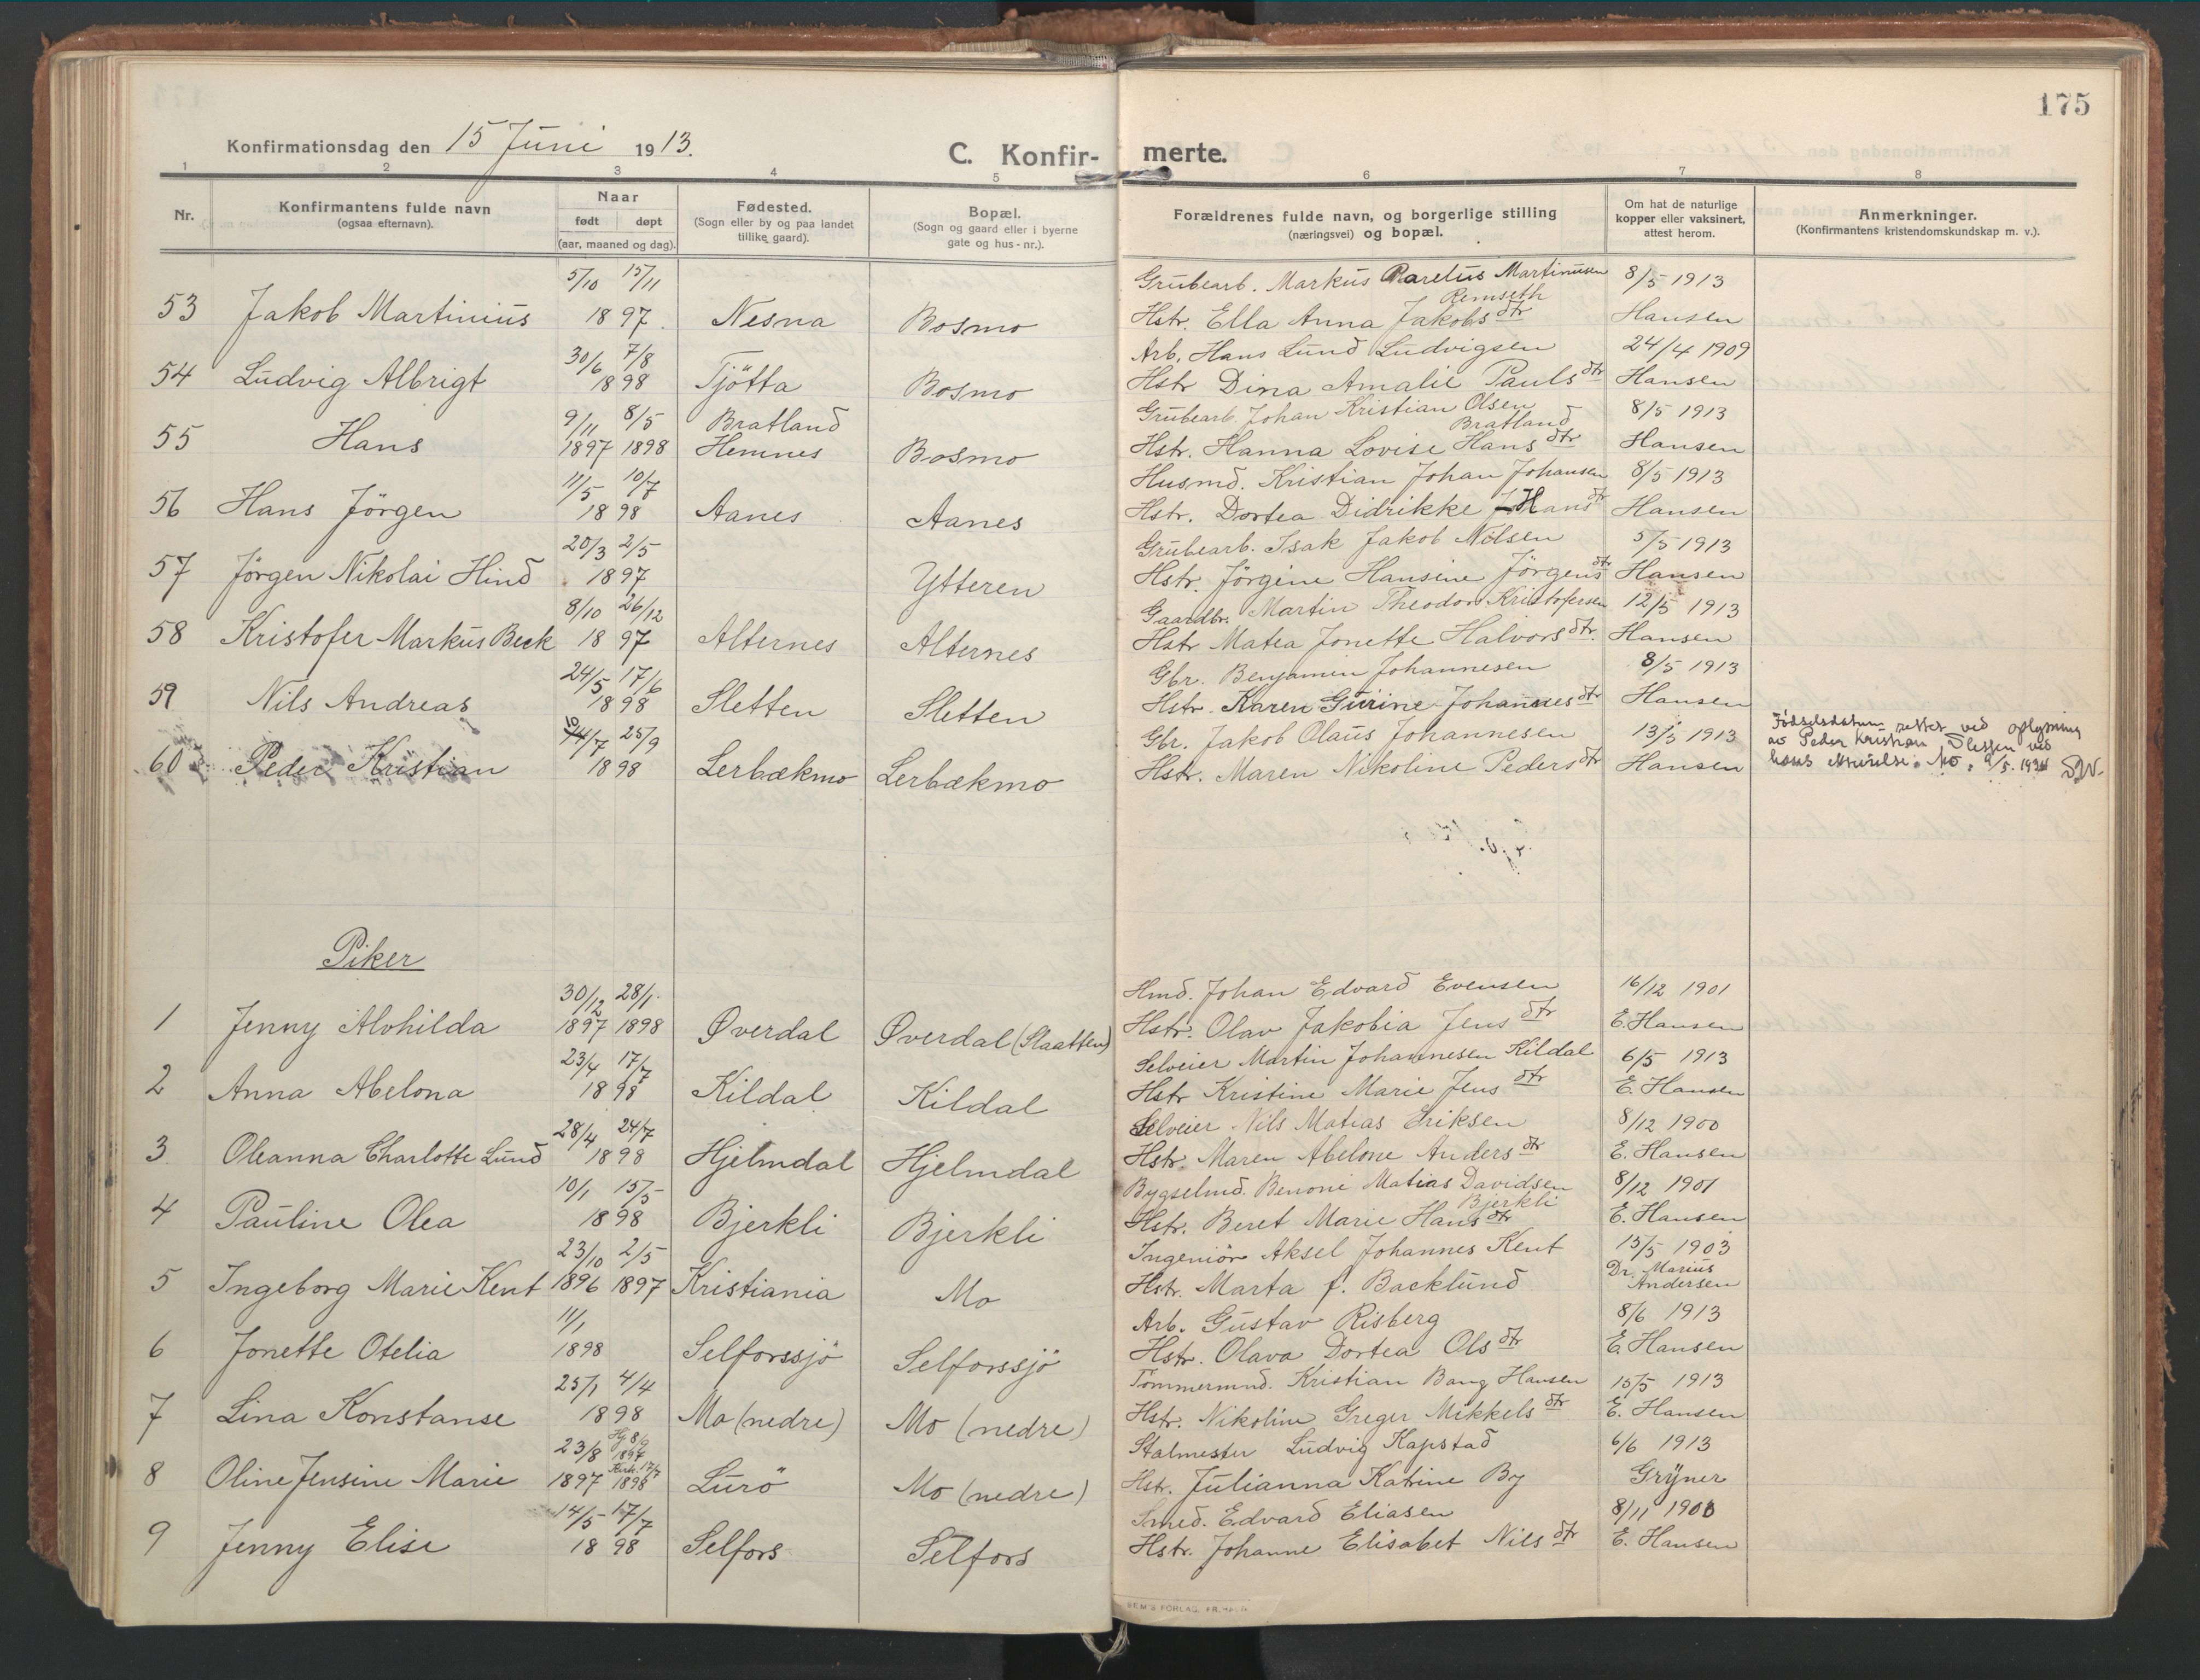 175
Konfirmationsdag den 15 Juni 1913.
C. Konfir- merte.
1 2 3 4 5 6 7 8
Nr.
Konfirmantens fulde navn
(ogsaa efternavn).
Naar
født døpt
(aar, maaned og dag).
Fødested.
(Sogn eller by og paa landet
tillike gaard).
Bopæl.
(Sogn og gaard eller i byerne
gate og hus-nr.).
Forældrenes fulde navn, og borgerlige stilling
(næringsvei) og bopæl.
Om hat de naturlige
kopper eller vaksinert,
attest herom.
Anmerkninger.
(Konfirmantens kristendomskundskap m. v.).
5/10 15/11 Grubearb. Markus Paretus Martinusen 8/5 1913
Remseth
53 Jakob Martinius 1897. Nesna Bosmo Hstr. Ella Anna Jakobsdtr Hansen
30/6 7/8 Arb. Hans Lund Ludvigsen 24/4 1909
54 Ludvig Albrigt 1898 Tjötta Bosmo Hstr Dina Amalie Paulsdtr Hansen
9/11 8/5 Bratland Grubearb. Johan Kristian Olsen 8/5 1913
Bratland
55 Hans 1897 1898 Hemnes Bosmo Hstr. Hanna Lovise Hansdtr Hansen
11/5 10/7 Husmd. Kristian Johan Johansen 8/5 1913
56 Hans Jörgen 1898 Aanes Aanes Hstr. Dortea Didrikke Hansdtr Hansen
20/3 2/5 Grubearb. Isak Jakob Nilsen 5/5 1913
57 Jörgen Nikolai Hind 1897 Ytteren Hstr. Jörgine Hansine Jörgensdtr Hansen
8/10 26/12 Gaardbr. Martin Theodor Kristofersen 12/5 1913
58 Kristofer Markus Beck 1897 Alternes Alternes Hstr Matea Jonette Halvorsdtr. Hansen
24/5 17/6 Gbr. Benjamin Johannesen 8/5 1913
59 Nils Andreas 1898 Sletten Sletten Hstr. Karen Gurine Johannesdtr Hansen
14/7 25/9 Gbr. Jakob Olaus Johannesen 13/5 1913
60 Peder Kristian 1898 Lerbækmo Lerbækmo Hstr. Maren Nikoline Pedersdtr Hansen
Fødselsdatum rettet ved oplysning
av Peder Kristian Slessen ved
hans Mo, 9/5. 1934
Piker
30/12 28/1. Hmd. Johan Edvard Evensen 16/12 1901
1 Jenny Alvhilda 1897 1898 Øverdal Øverdal (Slaatten) Hstr. Olav Jakobia Jensdtr E. Hansen
23/4 17/7 Selveier Martin Johannesen Kildal 6/5 1913
2 Anna Abelona 1898 Kildal Kildal Hstr Kristine Marie Jensdtr E. Hansen
28/4 24/7 Selveier Nils Matias Eriksen 8/12 1900
3 Oleanna Charlotte Lund 1898 Hjelmdal Hjelmdal Hstr. Maren Abelone Andersdtr E. Hansen
10/1 15/5 Bygselmd. Benoni Matias Davidsen 8/12 1901
Bjerkli
4 Pauline Olea 1898 Bjerkli Bjerkli Hstr. Beret Marie Hansdtr E. Hansen
23/10 2/5 Ingeniör Aksel Johannes Kent 15/5 1903
5 Ingeborg Marie Kent 1896 1897 Kristiania Mo Hstr. Marta f. Backlund Dr. Marius
Andersen
11/1 Arb. Gustav Risberg 8/6 1913
6 Jonette Otelia 1898 Selforssjö Selforssjö Hstr. Olava Dortea Olsdtr E. Hansen
25/1 4/4 Tömmermnd. Kristian Bang Hansen 15/5 1913
7 Lina Konstanse 1898 Mo (nedre) Mo (nedre) Hstr. Nikoline Greger Mikkelsdtr E. Hansen
23/8 Hj 8/9 1897 Stalmester Ludvig Kapstad 6/6 1913
8 Oline Jensine Marie 1897 Kirk. 17/7 1898 Lurö Mo (nedre) Hstr. Julianna Katrine By Grÿner
14/5 17/7 Smed. Edvard Eliasen 8/11 1900
9 Jenny Elise 1898 Selfors Selfors Hstr. Johanne Elisabet Nilsdtr E. Hansen